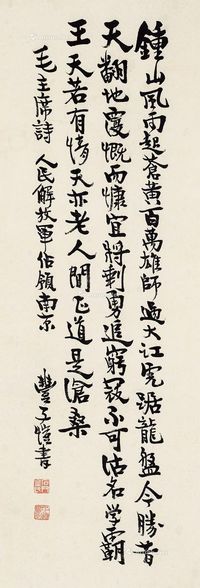 鍾山風雨起蒼黃百萬雄師過大江虎踞龍盤今勝昔
天翻地覆慨而慷宜將剩勇追窮寇不可沽名學霸
王天若有情天亦老人間正道是滄桑
毛主席詩 人民解放軍佔領南京
豐子愷書